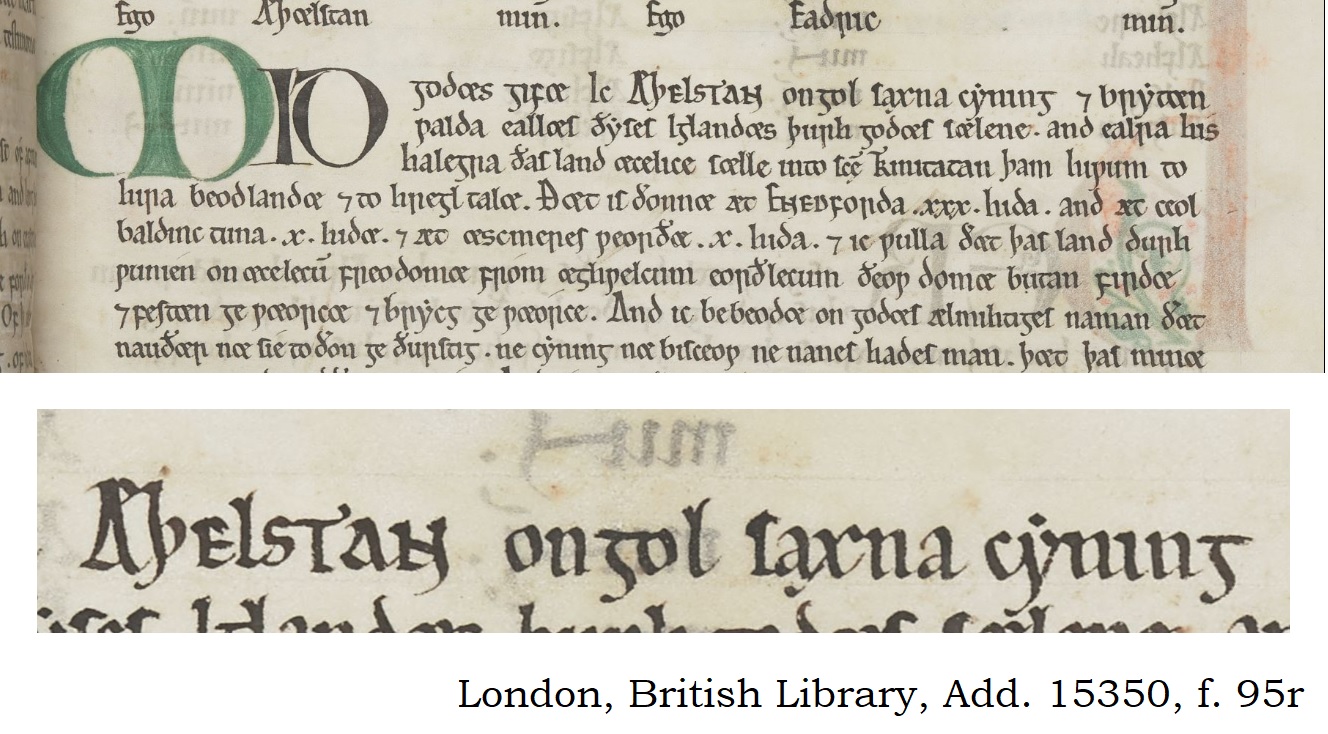 Ego Aþęlstan miñ. Ego Eadric miñ.
MID godæs gifæ Ic AÞELSTAN ongol saxna cẏning ⁊ brẏtæn
ƿalda eallæs ðẏses Iglandæs þurh godæs sælene. and ealra his
halegra ðas land æcelice sælle into scē trinitatan þam hiƿum to
hira beodlandæ ⁊ to hregl talæ. Ðæt is ðonnæ æt ENEDFORda .xxx. hida. and æt ceol
baldinc tuna. x. hidæ. ⁊ æt æscmeres ƿeorðæ. x. hida. ⁊ ic ƿulla ðæt þas land ðurh
ƿunien on æcelecū freodomæ from æghƿelcum eorðlecum ðeoƿ domæ butan firdæ
⁊ festæn ge ƿæorcæ ⁊ brẏcg ge ƿæorce. And ic bebeodæ on godæs ælmihtiges naman ðæt
nauðær næ sie to ðon ge ðurstig. ne cẏning næ bisceop ne nanes hades man. þæt þas minæ
AÞELSTAN ongol saxna cẏning
London, British Library, Add. 15350, f. 95r